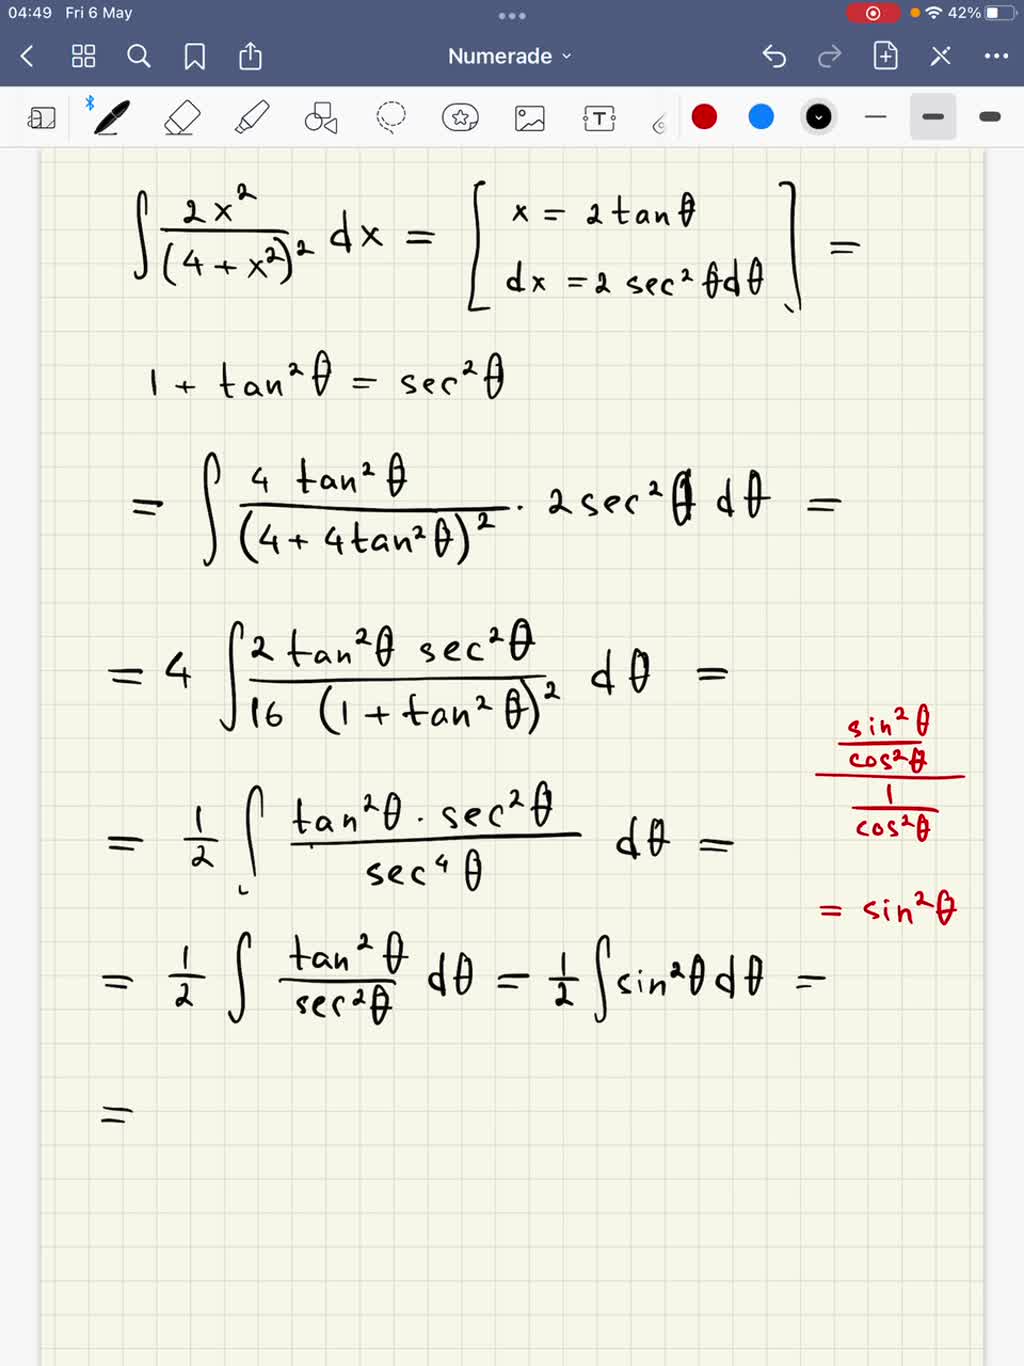 04:49 Fri 6 May 42%
Numerade
∫ 2x² / (4 + x²)² dx = [ x = 2 tan θ
dx = 2 sec² θ dθ ] =
1 + tan² θ = sec² θ
= ∫ 4 tan² θ / (4 + 4 tan² θ)² · 2 sec² θ dθ =
= 4 ∫ 2 tan² θ sec² θ / 16 (1 + tan² θ)² dθ =
sin² θ / cos² θ
1 / cos² θ
= 1/2 ∫ tan² θ · sec² θ / sec⁴ θ dθ =
= sin² θ
= 1/2 ∫ tan² θ / sec² θ dθ = 1/2 ∫ sin² θ dθ =
=